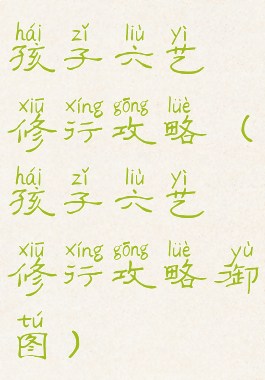 hái zǐ liù yì
孩子六艺
xiū xíng gōng lüè
修行攻略（
hái zǐ liù yì
孩子六艺
xiū xíng gōng lüè yù
修行攻略御
tú
图）